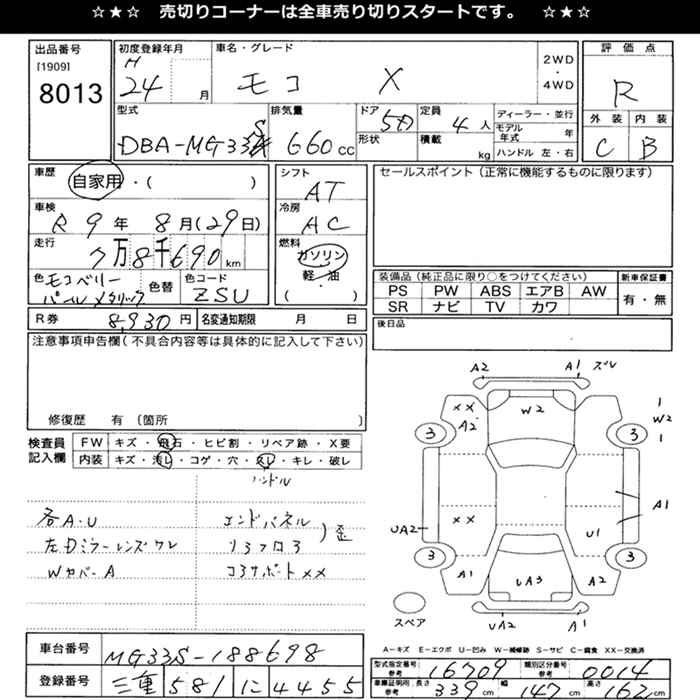 ☆★☆ 売切りコーナーは全車売り切りスタートです。 ☆★☆
出品番号
[1909]
8013
初度登録年月
H
24 月
車名・グレード
モコ X
2WD
・
4WD
評価点
R
外装 内装
C B
型式
DBA-MG33S
排気量
660 cc
ドア
5D
形状
定員
4 人
積載
kg
ディーラー・並行
モデル
年式 年
ハンドル 左・右
車歴
自家用・( )
車検
R 9 年 8 月(29日)
走行
7万8千690 km
色
モコベリー
パールメタリック
色替
色コード
ZSU
シフト
AT
冷房
AC
燃料
ガソリン
軽・油
( )
R券 8,930 円 名変通知期限 月 日
セールスポイント(正常に機能するものに限ります)
装備品(純正品に限り○をつけてください)
PS PW ABS エアB AW
SR ナビ TV カワ
新車保証書
有・無
後日品
注意事項申告欄(不具合内容等は具体的に記入して下さい)
修復歴 有〔箇所 〕
検査員
記入欄
FW キズ・飛石・ヒビ割・リペア跡・X要
内装 キズ・汚レ・コゲ・穴・スレ・キレ・破レ
ハンドル
各A・U
左Dミラーレンズワレ
Wカバー A
エンドパネル
リヤフロア
)歪
コアサポートXX
A2 A1 ズレ
XX
A2
W2
1
W2
1
3 3
XX
UA2
A1
U1
3 3
A1 UA3 A2
スペア
UA2 A1
A―キズ E―エクボ U―凹み W―補修跡 S―サビ C―腐食 XX―交換済
車台番号 MG33S-188698
登録番号 三重 581 に 4455
型式指定番号
参考 16709
類別区分番号
参考 0014
車庫証明用 長さ
参考 339 cm 幅 147 cm 高さ 162 cm